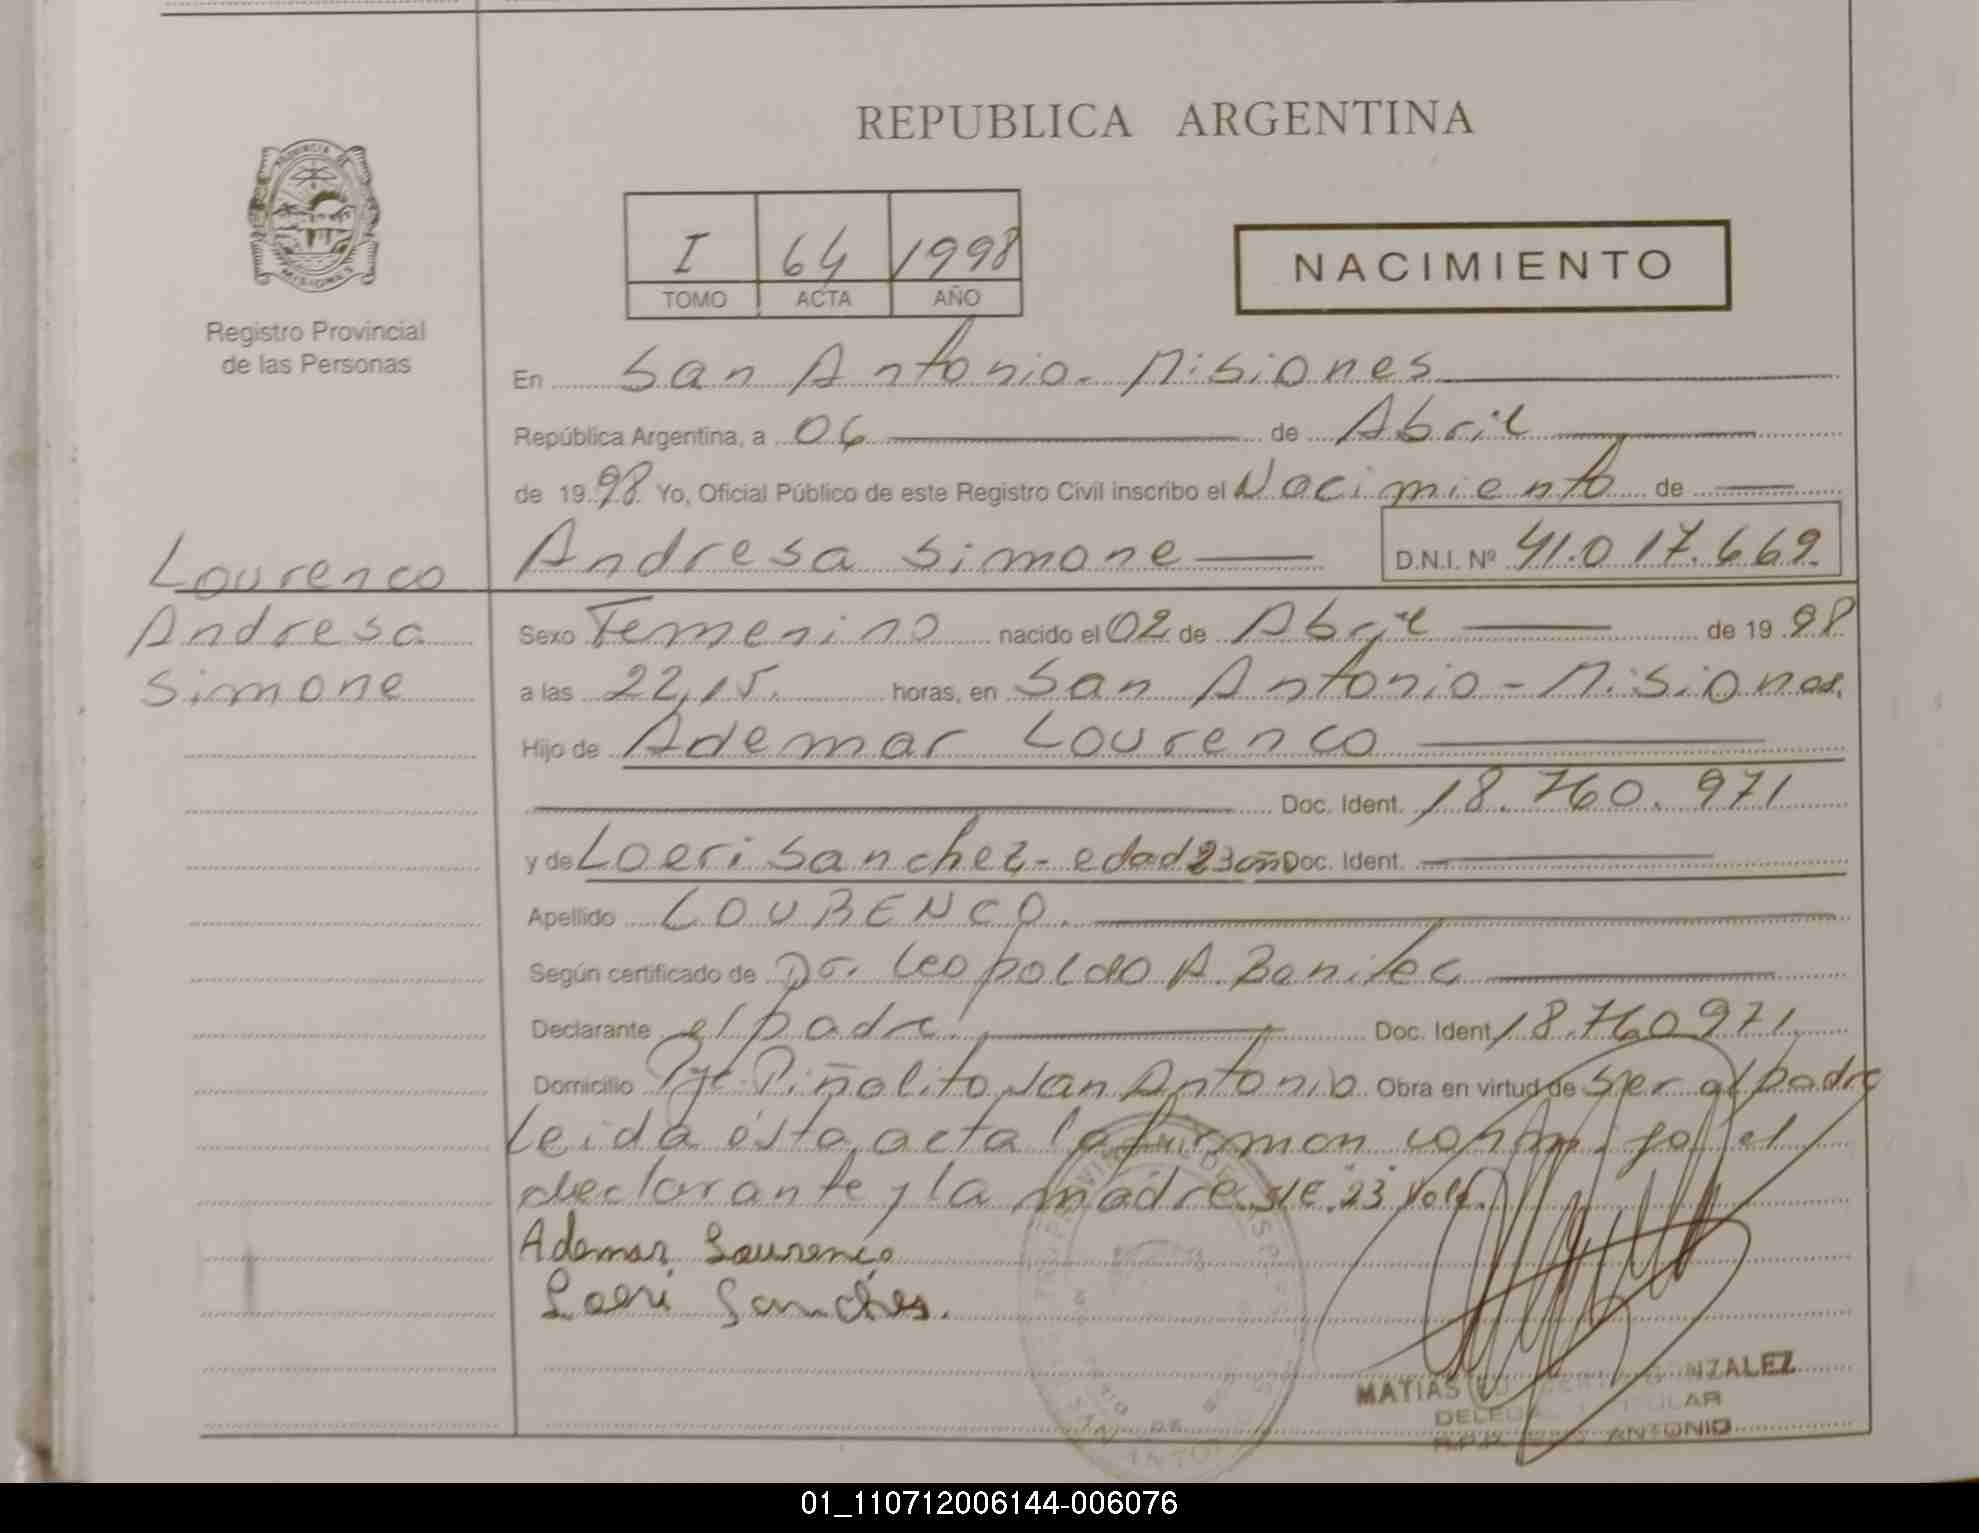 REPUBLICA ARGENTINA
PROVINCIA DE
MISIONES
Registro Provincial
de las Personas
I 64 1998
TOMO ACTA AÑO
NACIMIENTO
En San Antonio - Misiones
República Argentina, a 06 de Abril
de 19 98 Yo, Oficial Público de este Registro Civil inscribo el Nacimiento de
Andresa Simone D.N.I. Nº 41.017.669.
Lourenco
Andresa
Simone
Sexo Femenino nacido el 02 de Abril de 19 98
a las 22,15. horas, en San Antonio - Misiones.
Hijo de Ademar Lourenco
Doc. Ident. 18.760.971
y de Loeri Sanchez - edad 23 Doc. Ident.
Apellido LOURENCO.
Según certificado de Dr. Leopoldo A.
Declarante el padre. Doc. Ident. 18.760971.
Domicilio Pje. Piñalito San Antonio Obra en virtud de ser el padre
Leida ésta acta la firman conmigo el
declarante y la madre. 23
Ademar Lourenço
Loeri Sanches.
MATIAS NZALEZ
ANTONIO
01_110712006144-006076